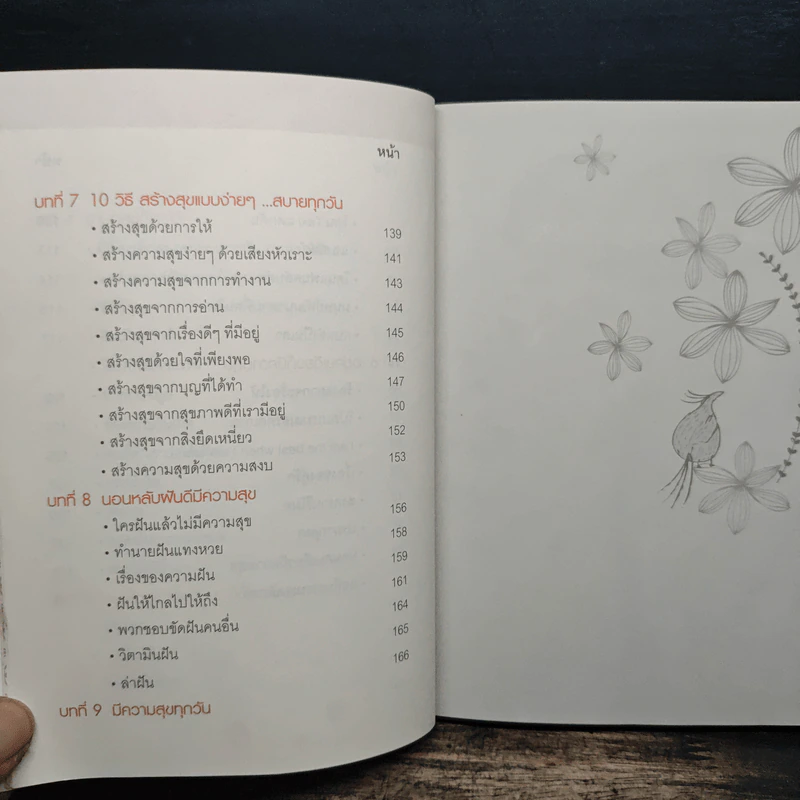 หน้า
บทที่ 7 10 วิธี สร้างสุขแบบง่ายๆ ...สบายทุกวัน
• สร้างสุขด้วยการให้ 139
• สร้างความสุขง่ายๆ ด้วยเสียงหัวเราะ 141
• สร้างความสุขจากการทำงาน 143
• สร้างสุขจากการอ่าน 144
• สร้างสุขจากเรื่องดีๆ ที่มีอยู่ 145
• สร้างสุขด้วยใจที่เพียงพอ 146
• สร้างสุขจากบุญที่ได้ทำ 147
• สร้างสุขจากสุขภาพดีที่เรามีอยู่ 150
• สร้างสุขจากสิ่งยึดเหนี่ยว 152
• สร้างความสุขด้วยความสงบ 153
บทที่ 8 นอนหลับฝันดีมีความสุข
• ใครฝันแล้วไม่มีความสุข 156
• ทำนายฝันแทงหวย 158
• เรื่องของความฝัน 159
• ฝันให้ไกลไปให้ถึง 161
• พวกชอบขัดฝันคนอื่น 164
• วิตามินฝัน 165
• ล่าฝัน 166
บทที่ 9 มีความสุขทุกวัน